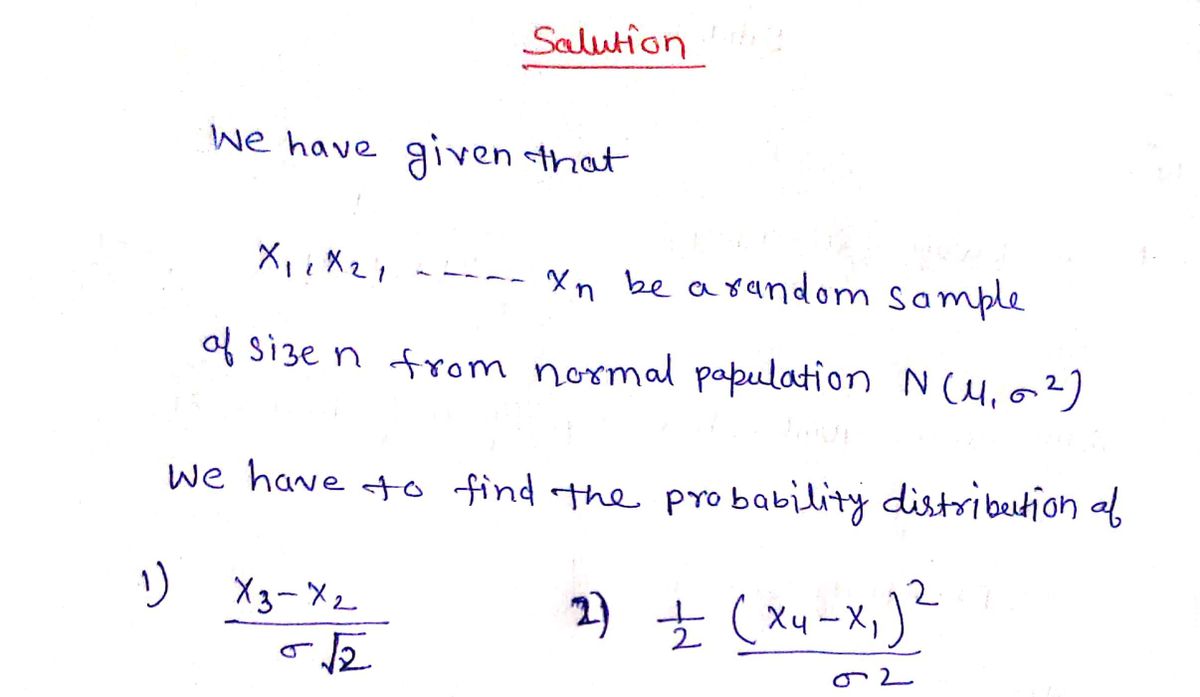 Salution
We have given that
X₁, X₂, ----- Xn be a random sample
of size n from normal papulation N (μ, σ²)
We have to find the probability distribution of
1) X₃-X₂ / σ√2 2) 1/2 (X₄-X₁)² / σ2